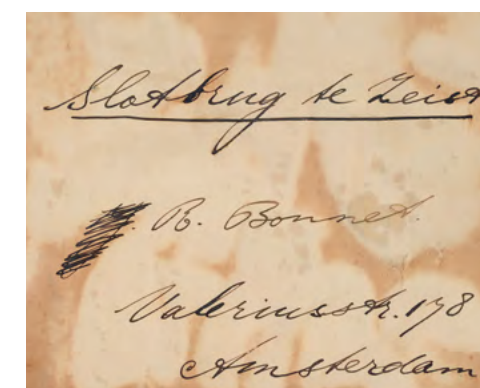 Slotbrug te Zeist
R. Bonnet.
Valeriusstr. 178
Amsterdam